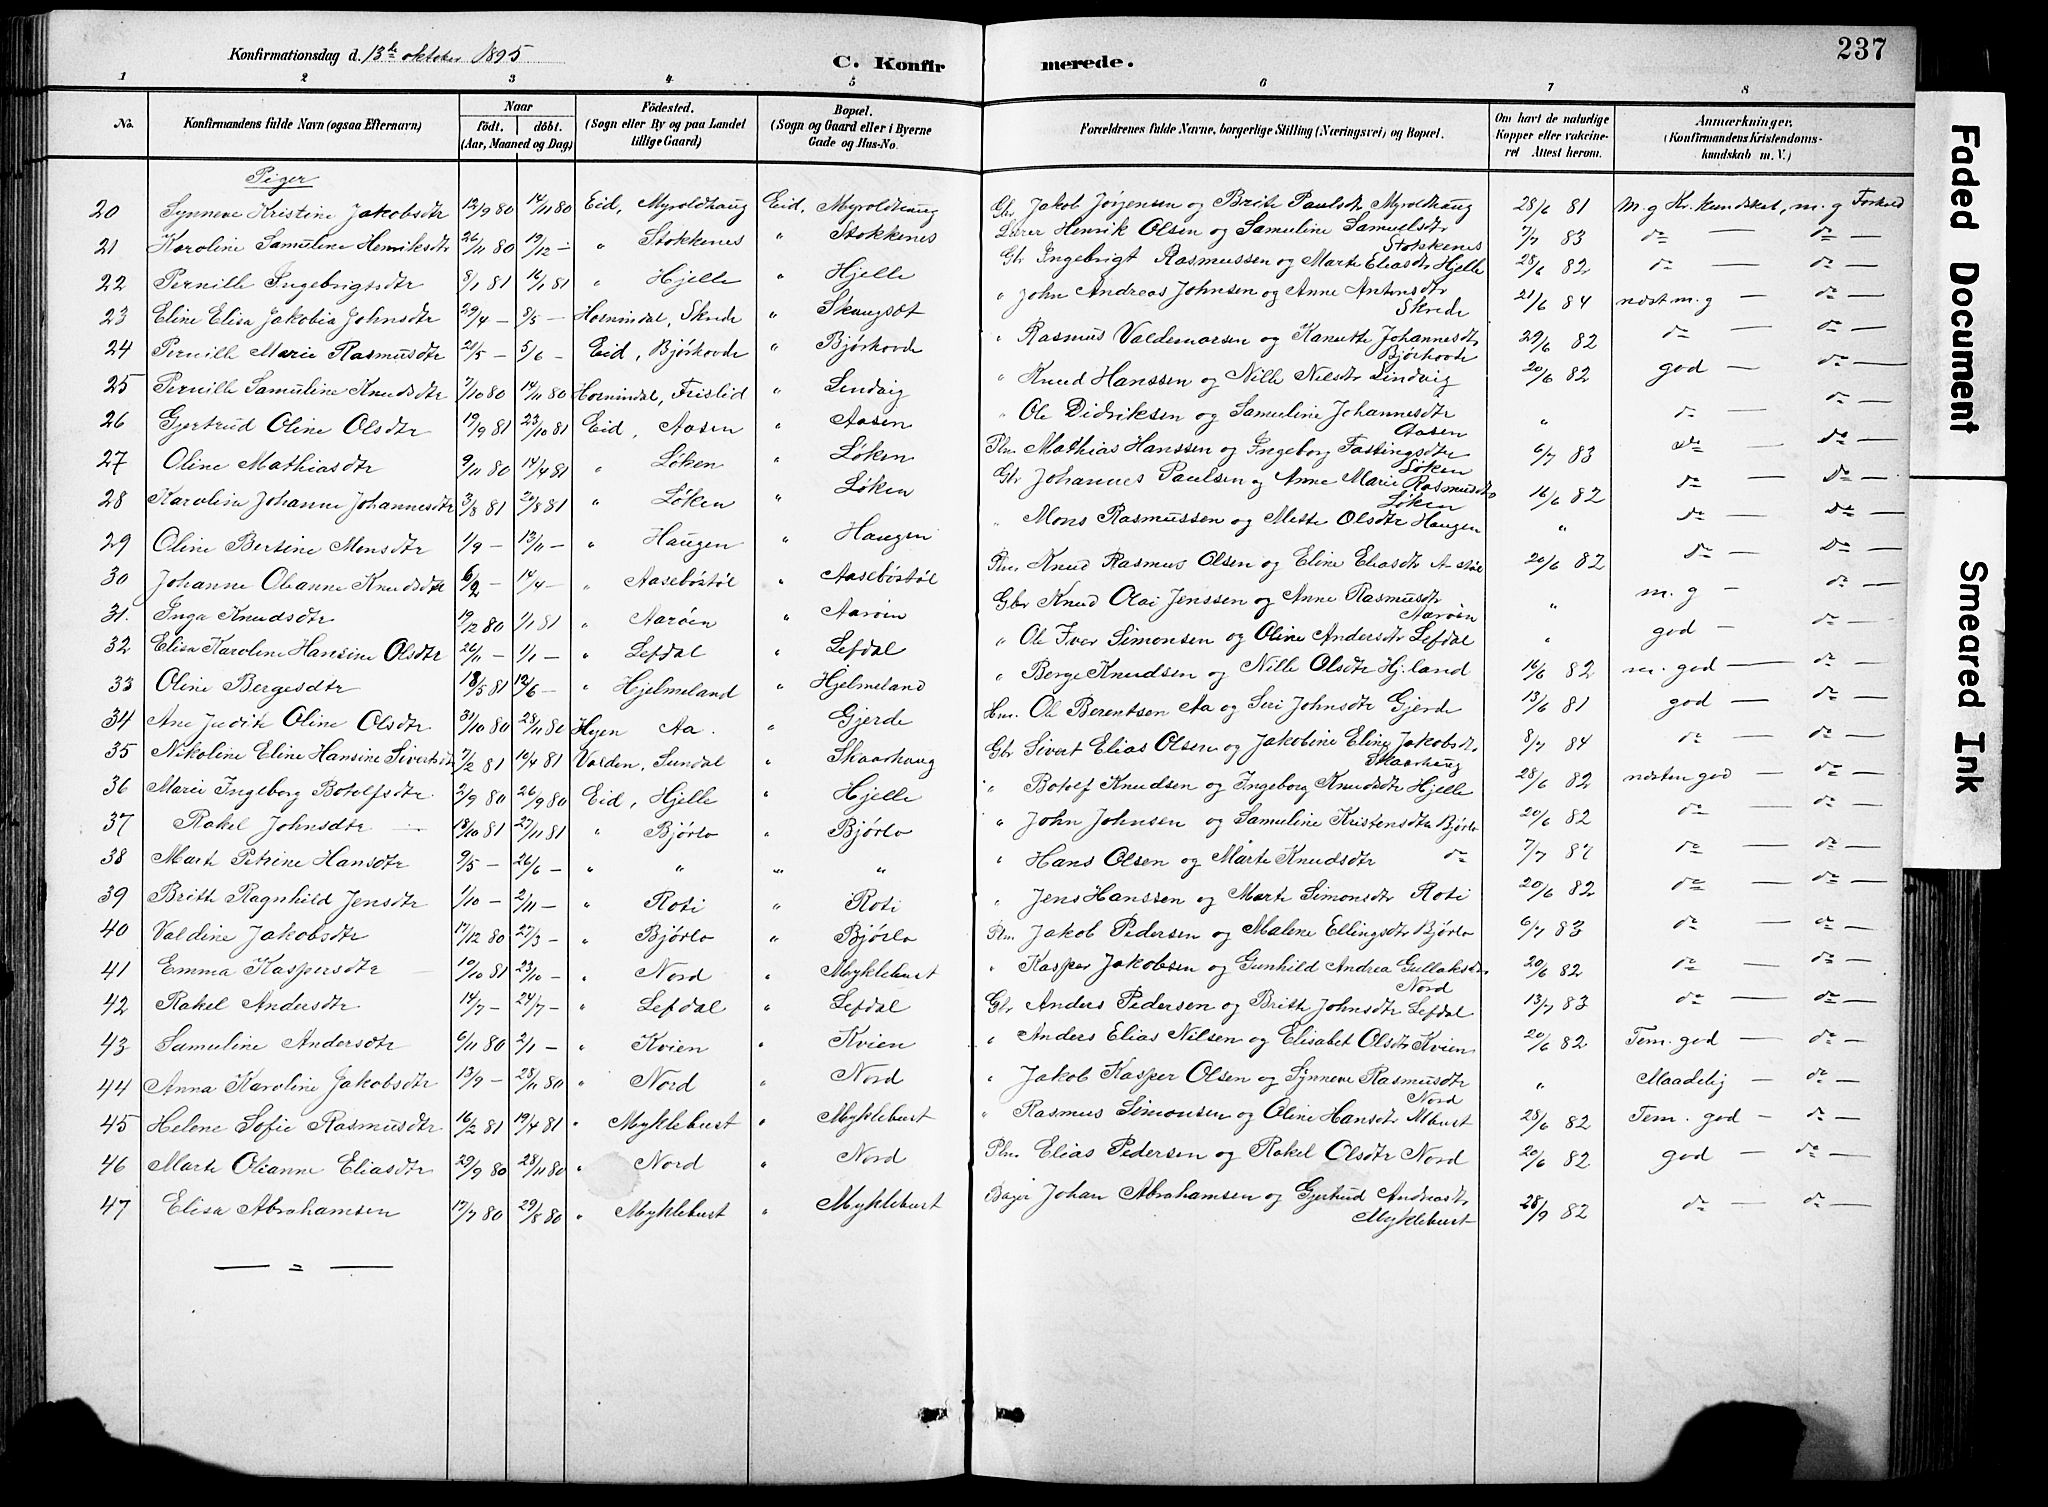 Konfirmationsdag d. 13de oktober 1895
C. Konfirmerede.
237
1 2 3 4 5 6 7 8
No.
Konfirmandens fulde Navn (ogsaa Efternavn)
Naar
födt. döbt.
(Aar, Maaned og Dag)
Födested.
(Sogn eller By og paa Landet
tillige Gaard)
Bopæl.
(Sogn og Gaard eller i Byerne
Gade og Hus-No.
Forældrenes fulde Navne, borgerlige Stilling (Næringsvei) og Bopæl.
Om havt de naturlige
Kopper eller vakcine-
ret Attest herom.
Anmærkninger,
(Konfirmandens Kristendoms-
kundskab m. V.)
Piger
20 Synneve Kristine Jakobsdtr 12/9 80 14/11 80 Eid, Myroldhaug Eid, Myroldhaug Gbr Jakob Jørgensen og Brite Paulsdtr Myroldhaug 28/6 81 m.g Kr. kundskab, m.g Forhold
21 Karoline Samuline Henriksdtr 26/11 80 19/12 — " Stokkenes " Stokkenes Lærer Henrik Olsen og Samuline Samuelsdtr Stokkenes 7/7 83 do — do —
22 Pernille Ingebrigtsdtr 8/1 81 16/1 81 " Hjelle " Hjelle Gbr Ingebrigt Rasmussen og Marte Eliasdtr Hjelle 28/6 82 do — do —
23 Eline Elisa Jakobia Johnsdtr 29/4 — 8/5 — Hornindal, Skrede " Skaugset " John Andreas Johnsen og Anne Antonsdtr Skrede 21/6 84 næst m.g — do —
24 Pernille Marie Rasmusdtr 21/5 — 5/6 — Eid, Bjørhovde " Bjørhovde " Rasmus Valdemarsen og Kanutte Johannesdtr Bjørhovde 29/6 82 do — do —
25 Pernille Samuline Knudsdtr 7/10 80 14/11 80 Hornindal, Frislid " Lindvig " Knud Hanssen og Nille Nilsdtr Lindvig 20/6 82 god — do —
26 Gjertrud Oline Olsdtr 19/9 81 23/10 81 Eid, Aasen " Aasen " Ole Didriksen og Samuline Johannesdtr Aasen " do — do —
27 Oline Mathiasdtr 9/11 80 14/4 81 " Løken " Løken Plm. Mathias Hanssen og Ingeborg Fastingsdtr Løken 6/7 83 do — do —
28 Karoline Johanne Johannesdtr 3/8 81 20/8 81 " Løken " Løken Gbr Johannes Paulsen og Anne Marie Rasmusdtr Løken 16/6 82 do — do —
29 Oline Bertine Monsdtr 1/9 — 13/11 — " Haugen " Haugen " Mons Rasmussen og Mette Olsdtr Haugen " do — do —
30 Johanne Oleanne Knudsdtr 6/2 — 14/4 — " Aasebøstøl " Aasebøstøl Plm. Knud Rasmus Olsen og Eline Eliasdtr A støl 20/6 82 do — do —
31. Inga Knudsdtr 19/12 80 1/1 81 " Aarøen " Aarøen Gbr Knud Olai Jenssen og Anne Rasmusdtr Aarøen " m.g — do —
32 Elisa Karoline Hansine Olsdtr 26/11 — 1/1 — " Lefdal " Lefdal " Ole Iver Simonsen og Oline Andersdtr Lefdal " god — do —
33 Oline Bergesdtr 18/5 81 12/6 — " Hjelmeland " Hjelmeland " Berge Knudsen og Nille Olsdtr Hj.land 16/6 82 m. god — do —
34 Ane Judith Oline Olsdtr 31/10 80 28/11 80 Hyen Aa. " Gjerde Hm. Ole Berentsen Aa og Seri Johnsdtr Gjerde 13/6 81 god — do —
35 Nikoline Eline Hansine Sivertsdtr 7/2 81 10/4 81 Volden, Sundal " Skaarhaug Gbr Sivert Elias Olsen og Jakobine Eline Jakobsdtr Skaarhaug 8/7 84 do — do —
36 Marie Ingeborg Botolfsdtr 2/9 80 26/9 80 Eid, Hjelle " Hjelle " Botolf Knudsen og Ingeborg Knudsdtr Hjelle 28/6 82 næsten god — do —
37 Rakel Johnsdtr — 18/10 81 27/11 81 " Bjørlo " Bjørlo " John Johnsen og Samuline Kristensdtr Bjørlo 20/6 82 do — do —
38 Marte Petrine Hansdtr 9/5 — 26/6 — " " " " " Hans Olsen og Marte Knudsdtr do 7/7 82 do — do —
39 Britte Ragnhild Jensdtr 1/10 — 2/11 — " Roti " Roti " Jens Hanssen og Marte Simonsdtr Roti 20/6 82 do — do —
40 Valdine Jakobsdtr 17/12 80 27/3 — " Bjørlo " Bjørlo Plm. Jakob Pedersen og Malene Ellingsdtr Bjørlo 6/7 83 do — do —
41 Emma Kaspersdtr 10/10 81 23/10 — " Nord " Myklebust " Kasper Jakobsen og Gunhild Andrea Gullaksdtr Nord 20/6 82 do — do —
42 Rakel Andersdtr 14/7 — 24/7 — " Lefdal " Lefdal Gbr Anders Pedersen og Britt Johnsdtr Lefdal 13/7 83 do — do —
43 Samuline Andersdtr 6/11 80 2/1 — " Kvien " Kvien " Anders Elias Nilsen og Elisabet Olsdtr Kvien 20/6 82 Tem. god — do —
44 Anna Karoline Jakobsdtr 13/9 — 28/11 80 " Nord " Nord " Jakob Kasper Olsen og Synneve Rasmusdtr Nord " Maadelig — do —
45 Helene Sofie Rasmusdtr 16/2 81 19/4 81 " Myklebust " Myklebust " Rasmus Simonsen og Oline Hansdtr Mbust 28/6 82 Tem. god — do —
46 Marte Oleanne Eliasdtr 29/9 80 28/11 80 " Nord " Nord Plm. Elias Pedersen og Rakel Olsdtr Nord 20/6 82 god — do —
47 Elisa Abrahamsen 17/7 80 29/8 80 " Myklebust " Myklebust Bager Johan Abrahamsen og Gjertrud Andreasdtr Myklebust 28/9 82 do — do —
Faded Document
Smeared Ink